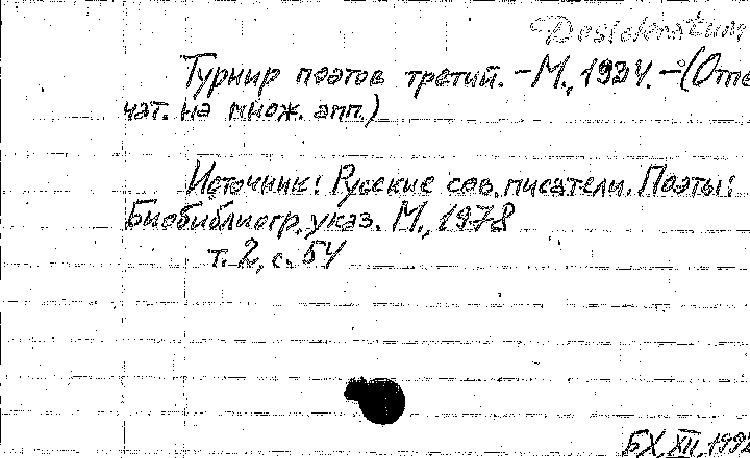 Desideratum
Турнир поэтов третий. – М., 1934. – (Отпе
чат. на множ. апп.)
Источник: Русские сов. писатели. Поэты:
Биобиблиогр. указ. М., 1978
т. 2, с. 54
БХ, XII, 199